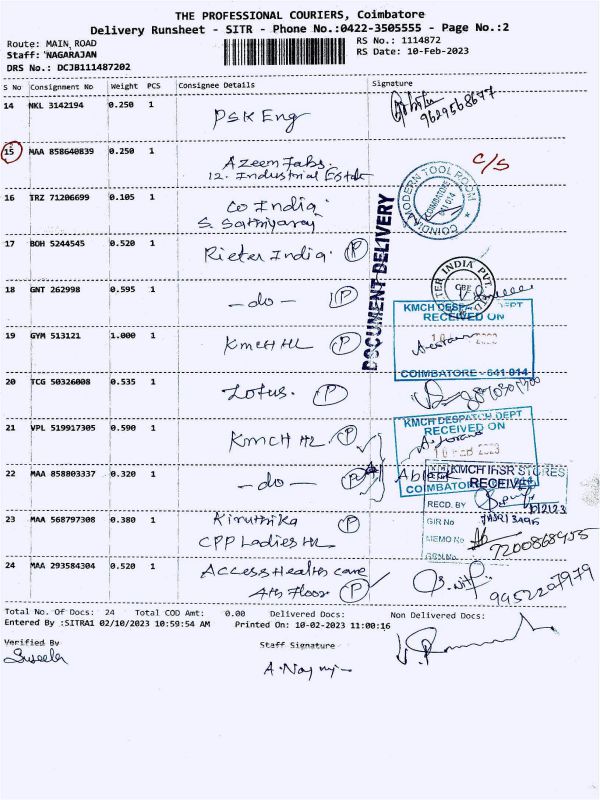 THE PROFESSIONAL COURIERS, Coimbatore
Delivery Runsheet - SITR - Phone No.:0422-3505555 - Page No.:2
Route: MAIN ROAD
Staff: NAGARAJAN
DRS No.: DCJB111487202
RS No.: 1114872
RS Date: 10-Feb-2023
S No Consignment No Weight PCS Consignee Details Signature
14 NKL 3142194 0.250 1 PSK Eng
9629568677
15 MAA 858640839 0.250 1 Azeem Fabs.
12. Industrial Estate
C/S
16 TRZ 71206699 0.105 1 Co India
S. Sathiyaraj
COINDIA MODERN TOOL ROOM
COIMBATORE
641 014
DOCUMENT DELIVERY
17 BOH 5244545 0.520 1 Rieter India. P
18 GNT 262998 0.595 1 - do - P
RIETER INDIA PVT.
CBE
KMCH DESPATCH DEPT
RECEIVED ON
19 GYM 513121 1.000 1 KMCH HL P
COIMBATORE - 641 014
20 TCG 50326008 0.535 1 Lotus. P
21 VPL 519917305 0.590 1 KMCH HL P
KMCH DESPATCH DEPT
RECEIVED ON
10 FEB 2023
22 MAA 858803337 0.320 1 - do - P A block
KMCH IHSR STORES
RECEIVED
COIMBATORE
RECD. BY
GIR No
MEMO No
GRN No.
23 MAA 568797308 0.380 1 Kiruthika P
CPP Ladies HL
7200868955
24 MAA 293584304 0.520 1 Access Health care
4th Floor P
9952207979
Total No. Of Docs: 24 Total COD Amt: 0.00 Delivered Docs: Non Delivered Docs:
Entered By :SITRA1 02/10/2023 10:59:54 AM Printed On: 10-02-2023 11:00:16
Verified By
Staff Signature